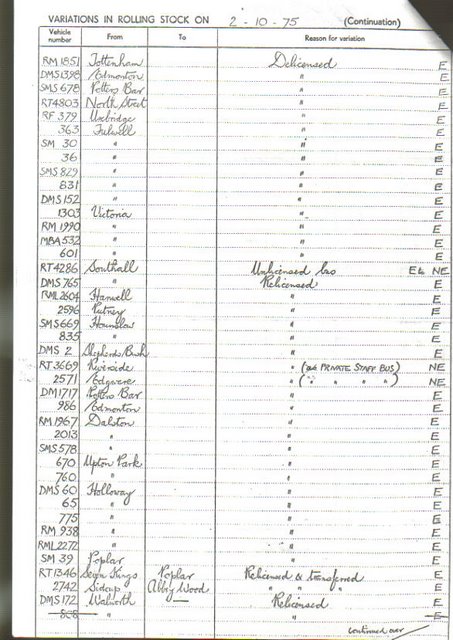 VARIATIONS IN ROLLING STOCK ON 2 - 10 - 75 (Continuation)
Vehicle number From To Reason for variation
RM 1851 Tottenham Delicensed E
DMS 1398 Edmonton " E
SMS 678 Potters Bar " E
RT 4803 North Street " E
RF 379 Uxbridge " E
363 Fulwell " E
SM 30 " " E
36 " " E
SMS 829 " " E
831 " " E
DMS 152 " " E
1303 Victoria " E
RM 1990 " " E
MBA 532 " " E
601 " " E
RT 4286 Southall Unlicensed bus E to NE
DMS 765 " Relicensed E
RML 2604 Hanwell " E
2596 Putney " E
SMS 669 Hounslow " E
835 " " E
DMS 2 Shepherds Bush " E
RT 3669 Riverside " (as PRIVATE STAFF BUS) NE
2571 Edgware " ( " " " " ) NE
DM 1717 Potters Bar " E
986 Edmonton " E
RM 1967 Dalston " E
2013 " " E
SMS 578 " " E
670 Upton Park " E
760 " " E
DMS 60 Holloway " E
65 " " E
775 " " E
RM 938 " " E
RML 2272 " " E
SM 39 Poplar " E
RT 1346 Seven Kings Poplar Relicensed & transferred E
2742 Sidcup Abbey Wood " " " E
DMS 172 Walworth — Relicensed E
808 " " E
continued over